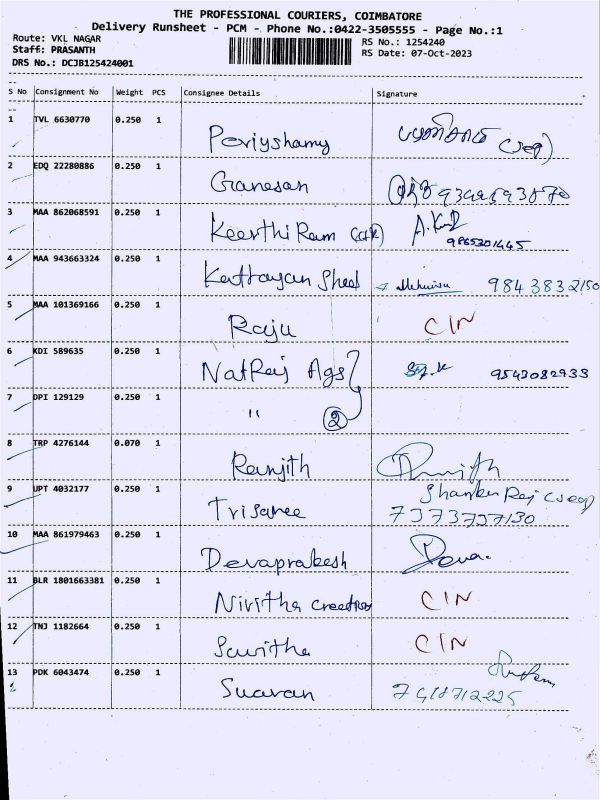 THE PROFESSIONAL COURIERS, COIMBATORE
Delivery Runsheet - PCM - Phone No.:0422-3505555 - Page No.:1
Route: VKL NAGAR
Staff: PRASANTH
DRS No.: DCJB125424001
RS No.: 1254240
RS Date: 07-Oct-2023
S No Consignment No Weight PCS Consignee Details Signature
1 TVL 6630770 0.250 1 Periyshamy
2 EDQ 22280886 0.250 1 Ganesan
3 MAA 862068591 0.250 1 Keerthi Ram
9865301445
4 MAA 943663324 0.250 1 Kattayan Shed 9843832150
5 MAA 101369166 0.250 1 Raju CIN
6 KDI 589635 0.250 1 NatRaj Ags 9543082933
7 DPI 129129 0.250 1 " 2
8 TRP 4276144 0.070 1 Ranjith
9 UPT 4032177 0.250 1 Trisanee Shanker Raj
7373737130
10 MAA 861979463 0.250 1 Devaprakash Deva.
11 BLR 1801663381 0.250 1 Nivitha Creations CIN
12 TNJ 1182664 0.250 1 Savitha CIN
13 PDK 6043474 0.250 1 Suaran